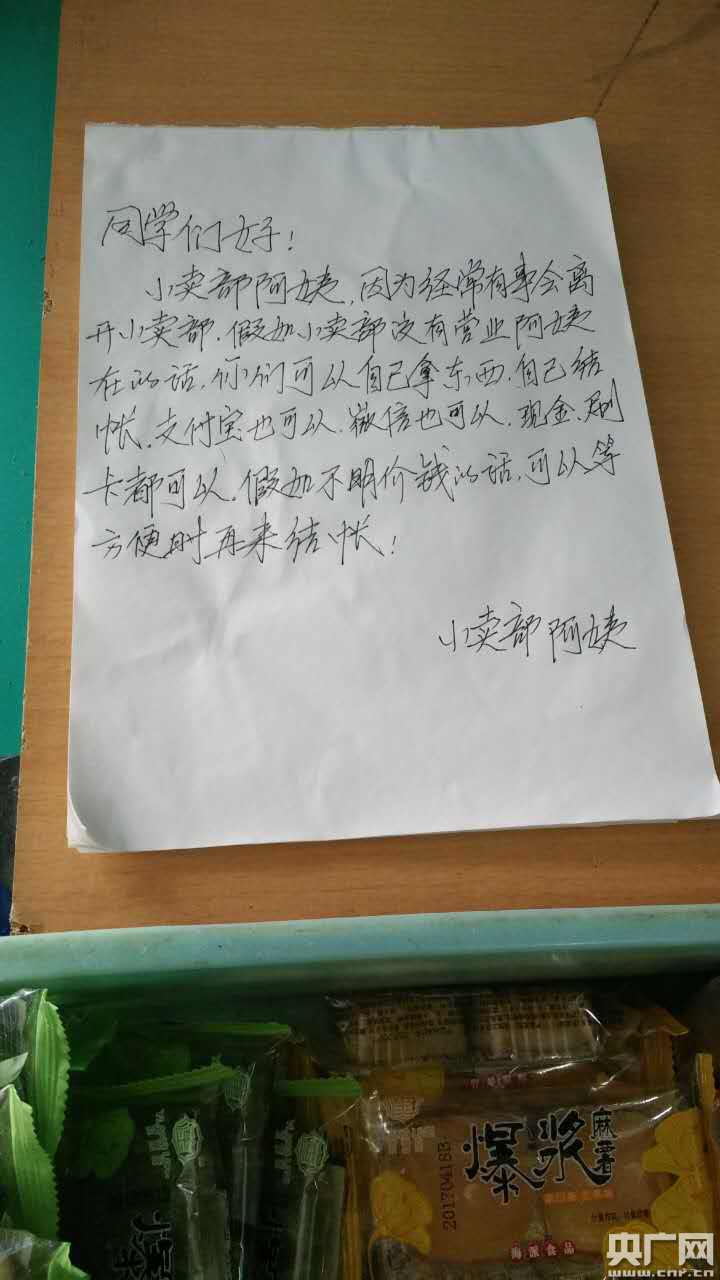 同学们好!
小卖部阿姨,因为经常有事会离
开小卖部.假如小卖部没有营业阿姨
在的话.你们可以自己拿东西.自己结
帐.支付宝也可以.微信也可以.现金.刷
卡都可以.假如不明价钱的话,可以等
方便时再来结帐!
小卖部阿姨
20170418B
爆浆
麻薯
海派食品
央广网
www.cnr.cn